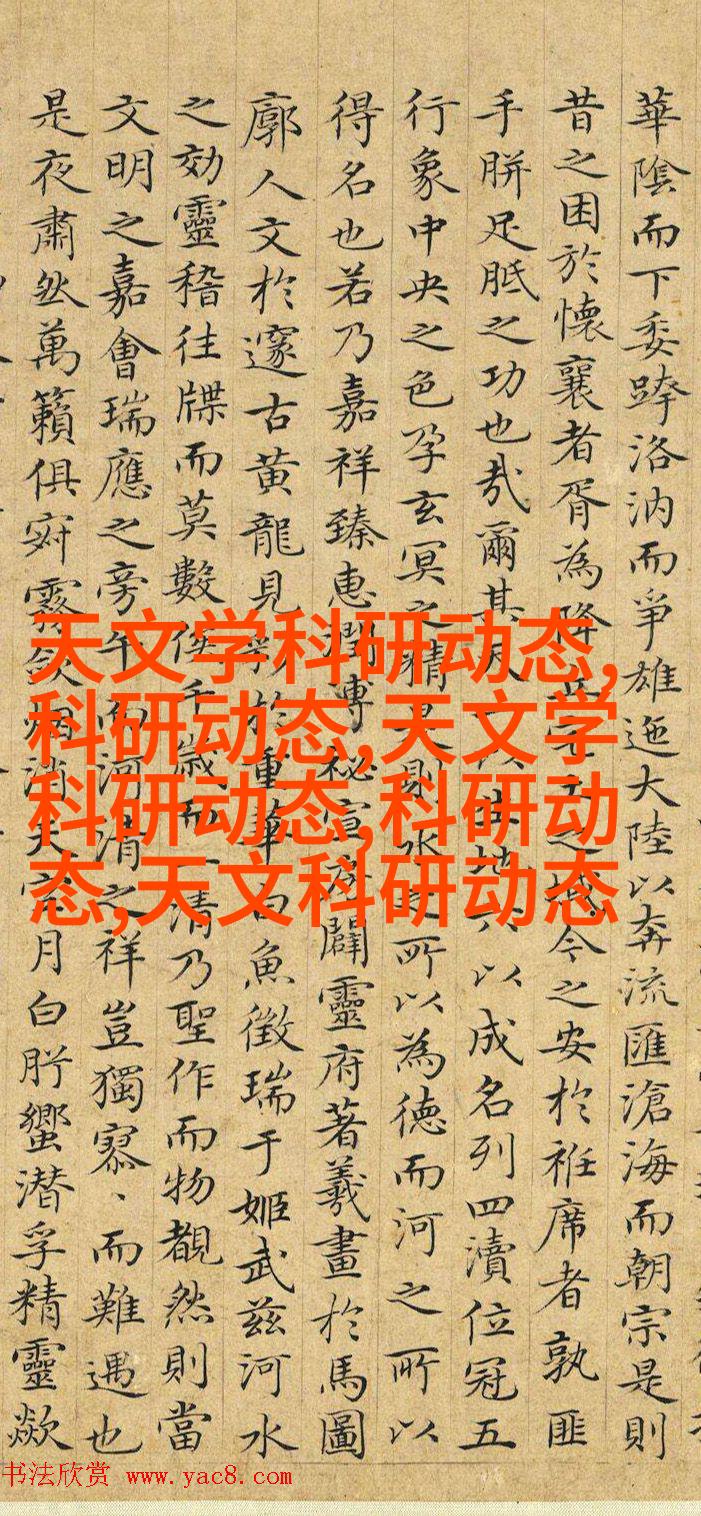 華陰而下委跨洛汭而爭雄迤大陸以奔流匯滄海而朝宗是則
昔之困於懷襄者胥為降之域今之安於袵席者孰匪
手胼足胝之功也矧爾其天以地以成名列四瀆位冠五
行象中央之色孕玄冥之精則水所以為德而河之所以
得名也若乃嘉祥臻惠潤溥秘宣闢靈府著羲畫於馬圖
廓人文於邃古黃龍見於重華白魚徵瑞于姬武茲河水
之効靈稽往牒而莫數俟千歲而一清乃聖作而物覩然則當
文明之嘉會瑞應之旁午而河清之祥豈獨寥、而難遇也
是夜肅然萬籟俱寂露斂烟消天空月白肸蠁潛孚精靈歘
天文学科研动态,
科研动态,天文学
科研动态,科研动
态,天文科研动态
书法欣赏 www.yac8.com